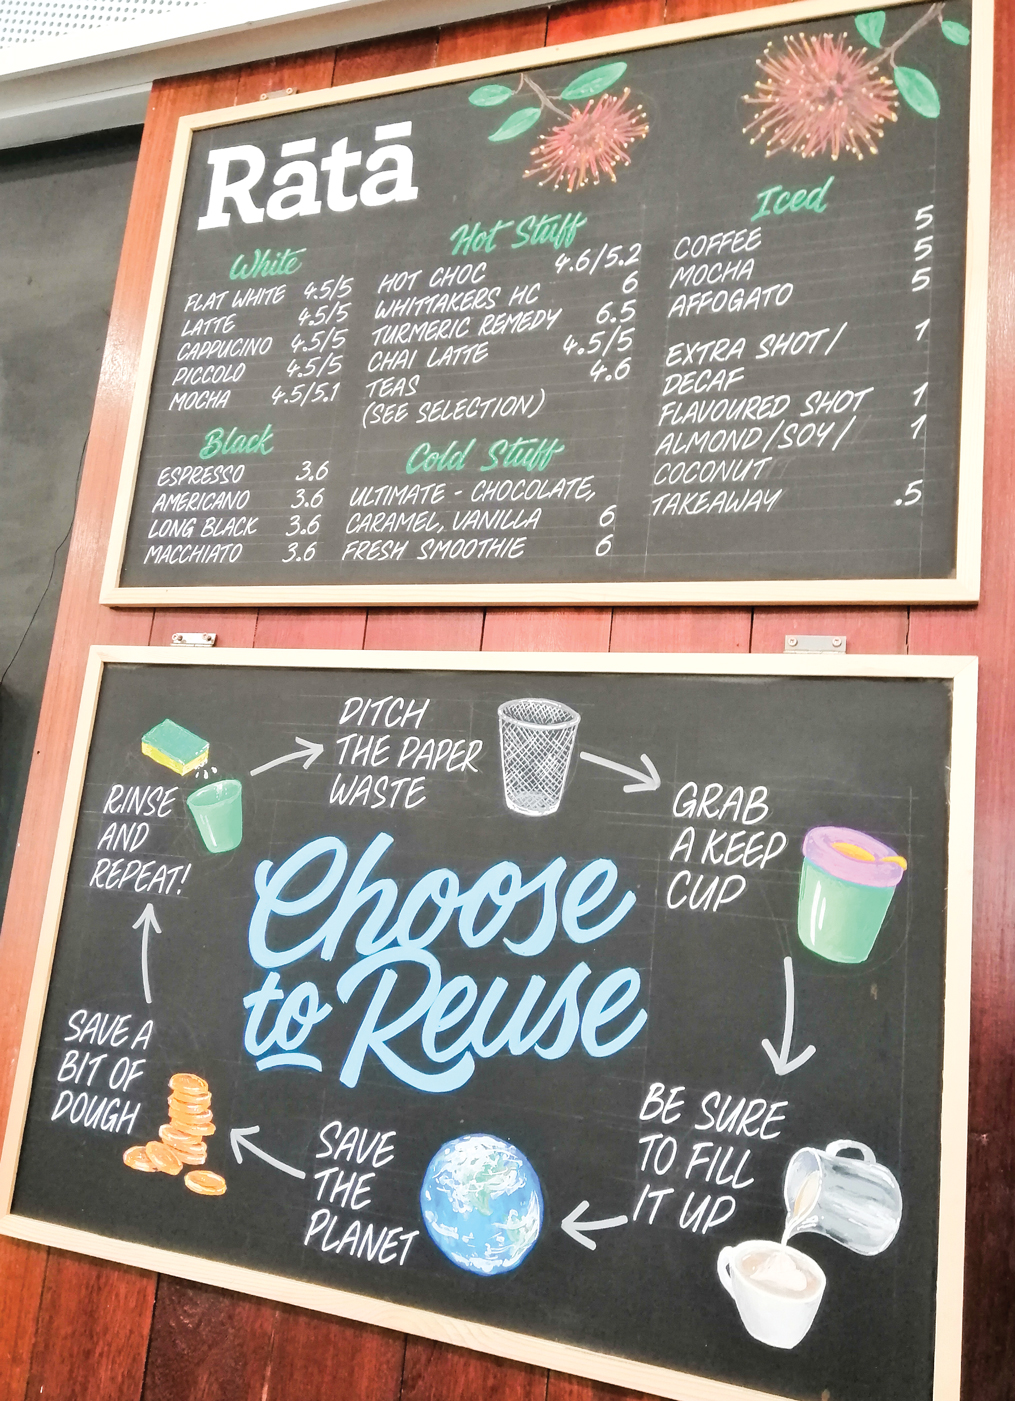 Rātā
White
FLAT WHITE 4.5/5
LATTE 4.5/5
CAPPUCINO 4.5/5
PICCOLO 4.5/5
MOCHA 4.5/5.1
Black
ESPRESSO 3.6
AMERICANO 3.6
LONG BLACK 3.6
MACCHIATO 3.6
Hot Stuff
HOT CHOC 4.6/5.2
WHITTAKERS HC 6
TURMERIC REMEDY 6.5
CHAI LATTE 4.5/5
TEAS 4.6
(SEE SELECTION)
Cold Stuff
ULTIMATE - CHOCOLATE,
CARAMEL, VANILLA 6
FRESH SMOOTHIE 6
Iced
COFFEE 5
MOCHA 5
AFFOGATO 5
EXTRA SHOT/ 1
DECAF
FLAVOURED SHOT 1
ALMOND/SOY/ 1
COCONUT
TAKEAWAY .5
DITCH
THE PAPER
WASTE
GRAB
A KEEP
CUP
BE SURE
TO FILL
IT UP
SAVE
THE
PLANET
SAVE A
BIT OF
DOUGH
RINSE
AND
REPEAT!
Choose
to Reuse